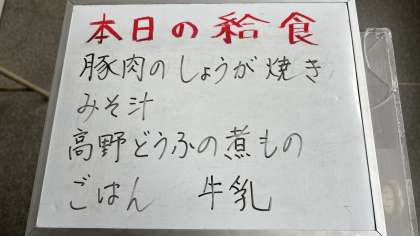 本日の給食
豚肉のしょうが焼き
みそ汁
高野どうふの煮もの
ごはん　牛乳